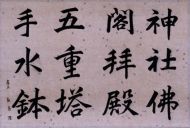 神社佛
閣拝殿
五重塔
手水鉢